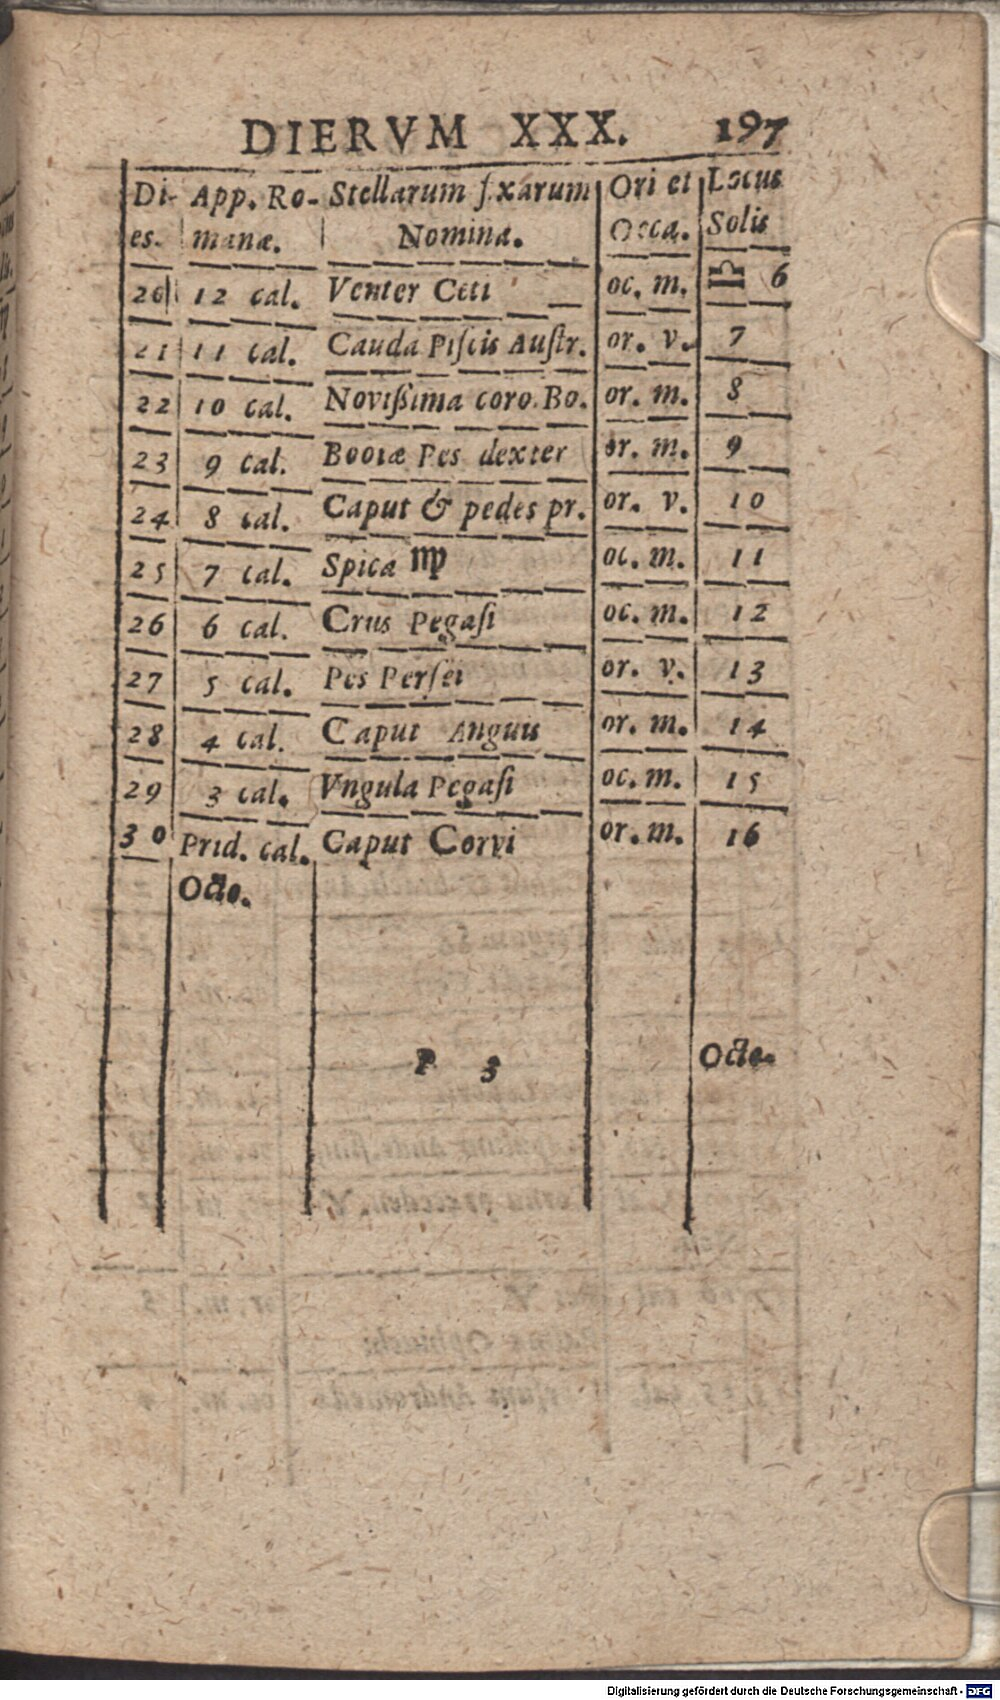 DIERVM XXX. 197
Di- App. Ro- Stellarum fixarum Ori et Locus
es. manæ. Nomina. Occa. Solis
20 12 cal. Venter Ceti oc. m. ♎ 6
21 11 cal. Cauda Piſcis Auſtr. or. v. 7
22 10 cal. Noviſsima coro. Bo. or. m. 8
23 9 cal. Bootæ Pes dexter or. m. 9
24 8 cal. Caput & pedes pr. or. v. 10
25 7 cal. Spica ♍ oc. m. 11
26 6 cal. Crus Pegaſi oc. m. 12
27 5 cal. Pes Perſei or. v. 13
28 4 cal. Caput Anguis or. m. 14
29 3 cal. Vngula Pegaſi oc. m. 15
30 Prid. cal. Caput Corvi or. m. 16
Octo.
P 3 Octo.
Digitalisierung gefördert durch die Deutsche Forschungsgemeinschaft - DFG